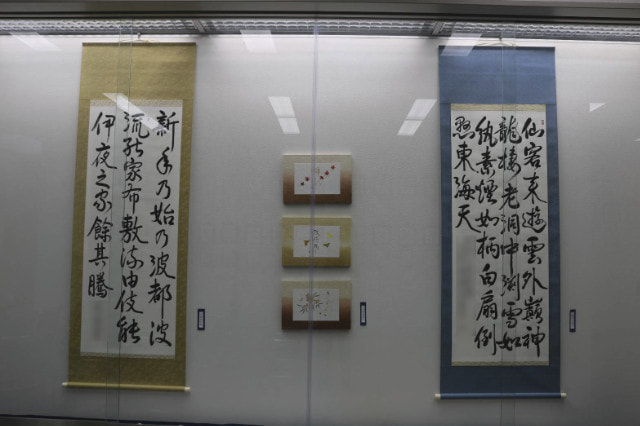 仙客来遊雲外巓神
龍棲老洞中渕雪如
紈素煙如柄白扇倒
懸東海天
新年乃始乃波都波
流能家布敷流由伎能
伊夜之家餘其騰